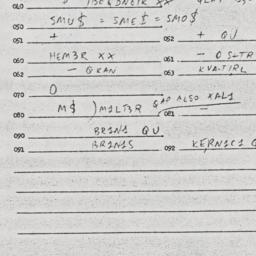 040
050 SMU$ = SME$ = SMO$
051 + 052 + QU
060 HEM3R XX 061 - O S+TR
062 - GRAN 063 KVATIRL
070 O
080 M$ ) M1LT3R GAD ALSO XAL1 081 -
090 BR1N1 QU
091 BR1N1S 092 KERN1C1 Q